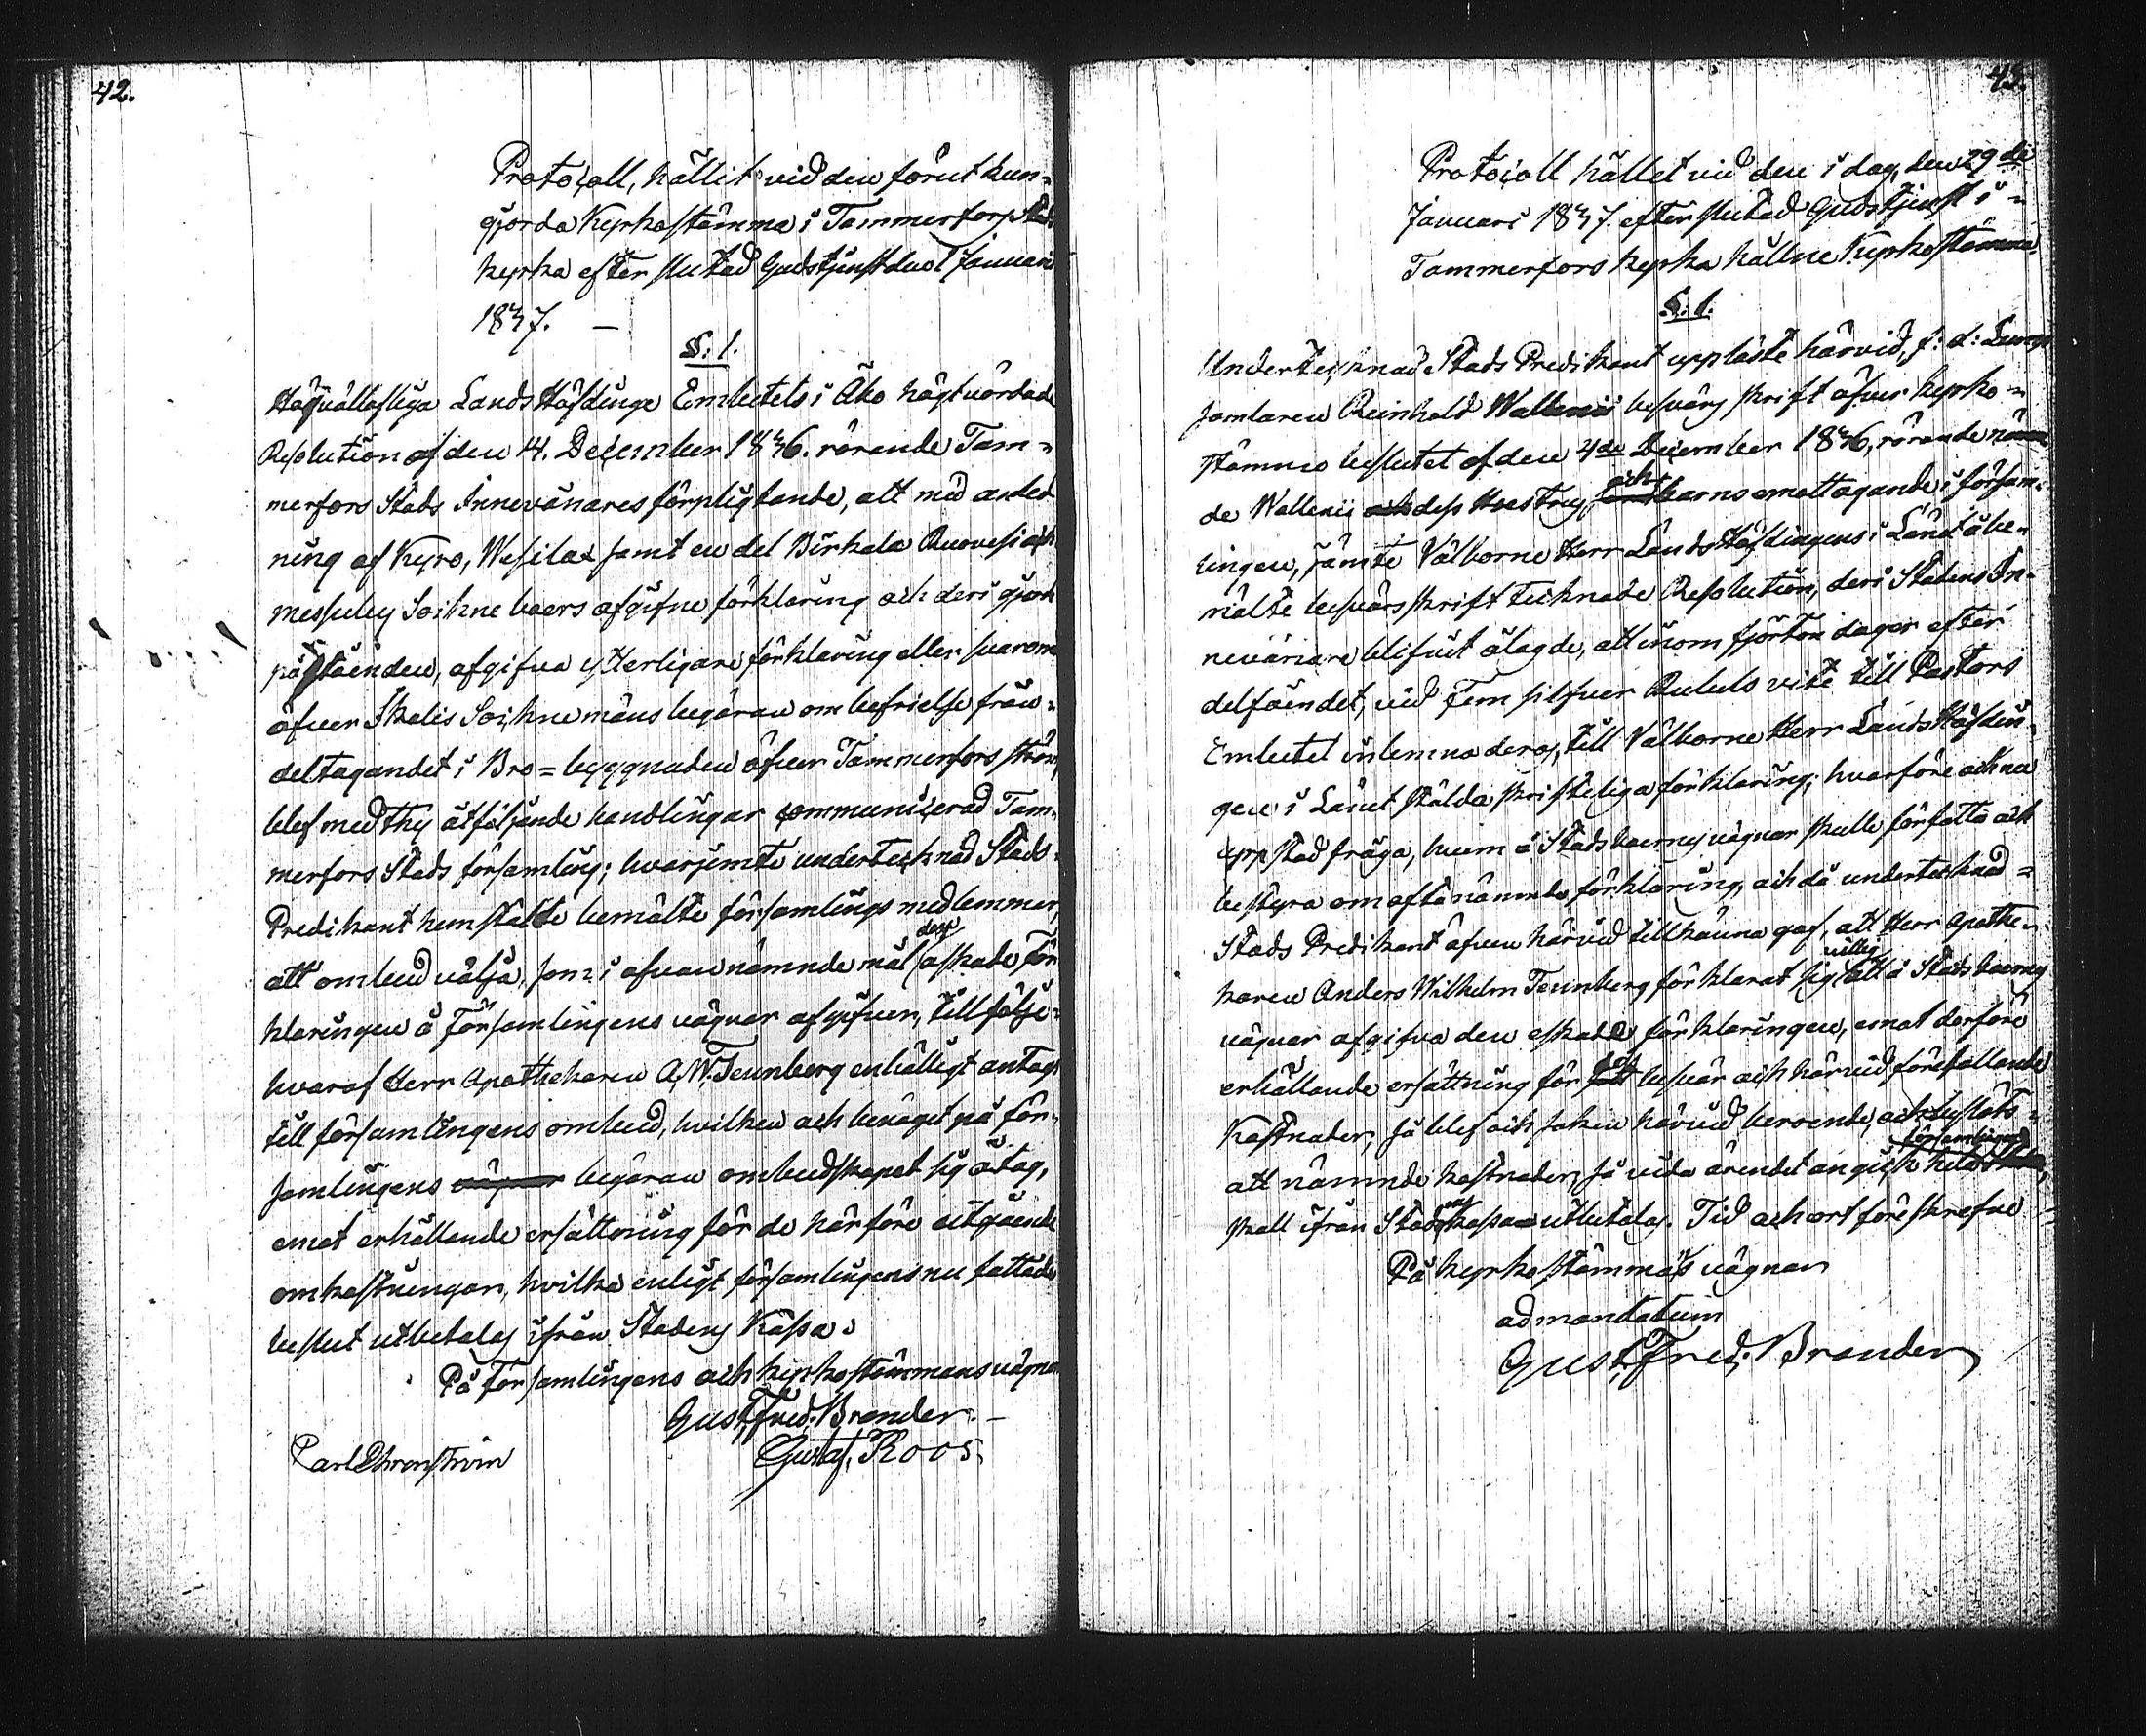 42.
Protocoll, hållit vid den förut kun-
gjorda Kyrkostämma i Tammerfors Stads
kyrka efter slutad Gudstjenst den 1 Januari
1837. —
§: 1.
Högvälloflige Lands Höfdinge Embetets i Åbo högtvördade
Resolution af den 14. December 1836. rörande Tam-
merfors Stads Innevånares förpligtande, att med anled
ning af Kyro, Wesilax samt en del Birkala Ruovesi och
Messuby Sockne boers afgifne förklaring och deri gjorde
påståenden, afgifva ytterligare förklaring eller svaromål
öfver Ikalis Sockne mäns begäran om befrielse från
deltagandet i Bro=byggnaden öfver Tammerfors ström,
blef med thy åtföljande handlingar communicerad Tam-
merfors Stads församling; hvarjemte undertecknad Stads-
Predikant hemstälte bemälte församlings medlemmar,
att ombud välja, som i ofvannämnde mål dess äskade För
klaringen å Församlingens vägnar afgifver, till följe
hvaraf Herr Apothekaren A. W. Tennberg enhälligt antogs
till församlingens ombud, hvilken och benäget på för-
samlingens vägnar begäran ombudskapet sig åtag,
emot erhållande ersättning för de härföre utgående
omkostningar, hvilka enligt församlingens nu fattade
beslut utbetalas ifrån Stadens Kassa.
På Församlingens och kyrkostämmans vägnar
Gust. Fred. Brander. —
Carl Ehrenström
Gustaf Roos
43.
Protocoll hållet vid den i dag, den 29de
Januari 1837. efter slutad Gudstjenst i
Tammerfors kyrka hållne Kyrkostämma.
§: 1.
Undertecknad Stads Predikant uppläste härvid, f: d: Lump
samlaren Reinhold Wallenii besvärs skrift öfver kyrko-
stämmo beslutet af den 4de December 1836, rörande näm
de Wallenii och dess Hustrus, och barns emottagande i försam-
lingen, jämte Välborne Herr Lands Höfdingens i Länet å be-
mälte besvärs skrift tecknade Resolution, deri Stadens In-
nevånare blifvit ålagde, att inom fjorton dagar efter
delfåendet, vid Fem silfver Rubels vite till Pastors
Embetet inlemna deras, till Välborne Herr Lands Höfdin-
gen i Länet stälda skrifteliga förklaring; hvarföre och nu
uppstod fråga, hvem å Stads boernes vägnar skulle författa och
bestyra om ofta nämnde förklaring, och då undertecknad
Stads Predikant äfven härvid tillkänna gaf, att Herr Apothe-
karen Anders Wilhelm Tennberg förklarat sig villig att å Stads boernes
vägnar afgifva den äskade förklaringen, emot derföre
erhållande ersättning för besvär och härvid förefallande
Kostnader; så blef och saken härvid beroende, och beslöts
att nämnde kostnader, så vida ärendet angick hela församlingen
skall ifrån Stads kassan utbetalas. Tid och ort föreskrefne
På kyrkostämmas vägnar
ad mandatum
Gust. Fred. Brander